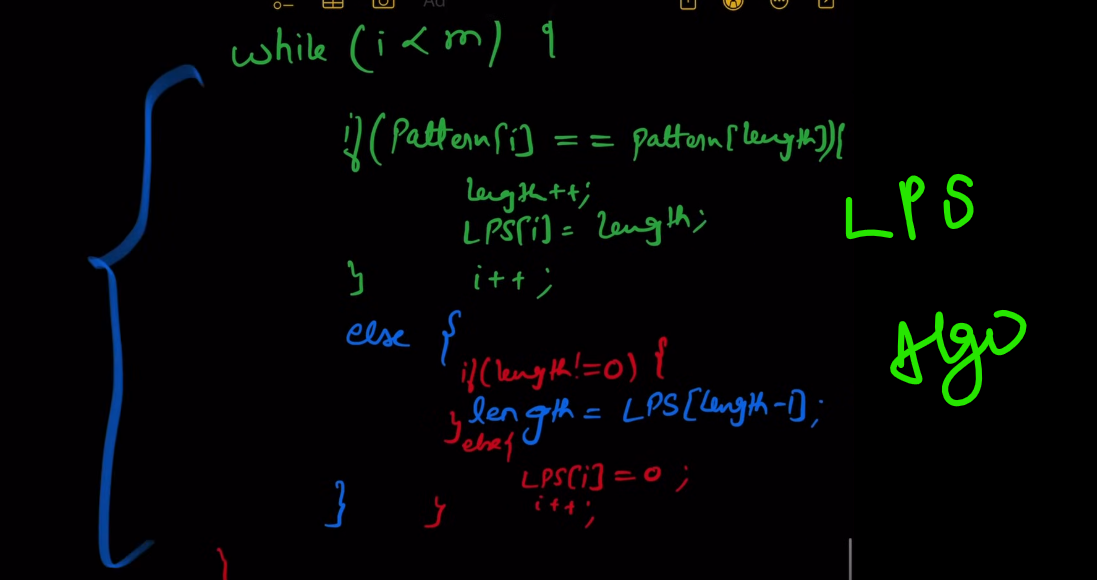 while (i < m) {
if(Pattern[i] == pattern[length]){
length++;
LPS[i] = length;
} i++;
else {
if(length!=0) {
length = LPS[length-1];
}else{
LPS[i] = 0;
i++;
} }
}
LPS
Algo